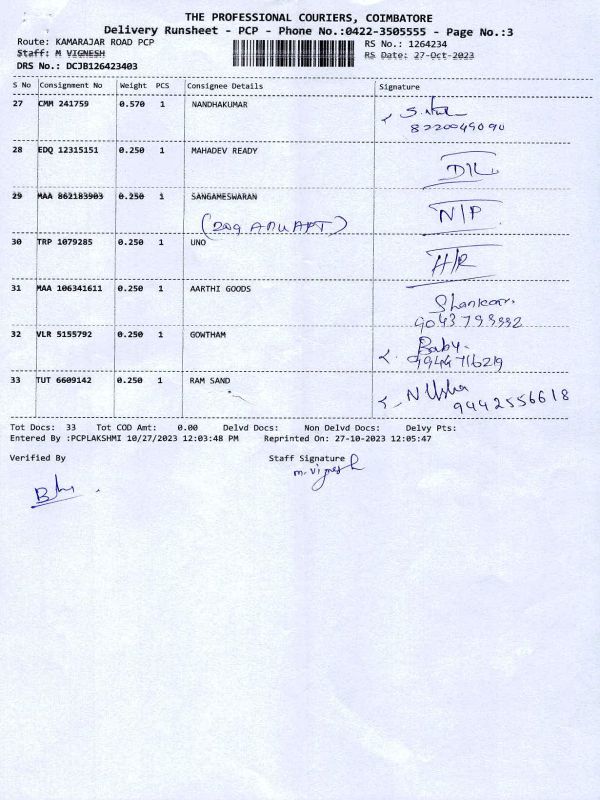 THE PROFESSIONAL COURIERS, COIMBATORE
Delivery Runsheet - PCP - Phone No.:0422-3505555 - Page No.:3
Route: KAMARAJAR ROAD PCP RS No.: 1264234
Staff: M VIGNESH RS Date: 27-Oct-2023
DRS No.: DCJB126423403
S No Consignment No Weight PCS Consignee Details Signature
27 CMM 241759 0.570 1 NANDHAKUMAR
8220049090
28 EDQ 12315151 0.250 1 MAHADEV READY
D/L
29 MAA 862183903 0.250 1 SANGAMESWARAN
(209 ANU APT) N/P
30 TRP 1079285 0.250 1 UNO
H/R
31 MAA 106341611 0.250 1 AARTHI GOODS
Shankar.
32 VLR 5155792 0.250 1 GOWTHAM
Baby.
9944716219
33 TUT 6609142 0.250 1 RAM SAND
N Usha
9442556618
Tot Docs: 33 Tot COD Amt: 0.00 Delvd Docs: Non Delvd Docs: Delvy Pts:
Entered By :PCPLAKSHMI 10/27/2023 12:03:48 PM Reprinted On: 27-10-2023 12:05:47
Verified By Staff Signature
m. Vignesh